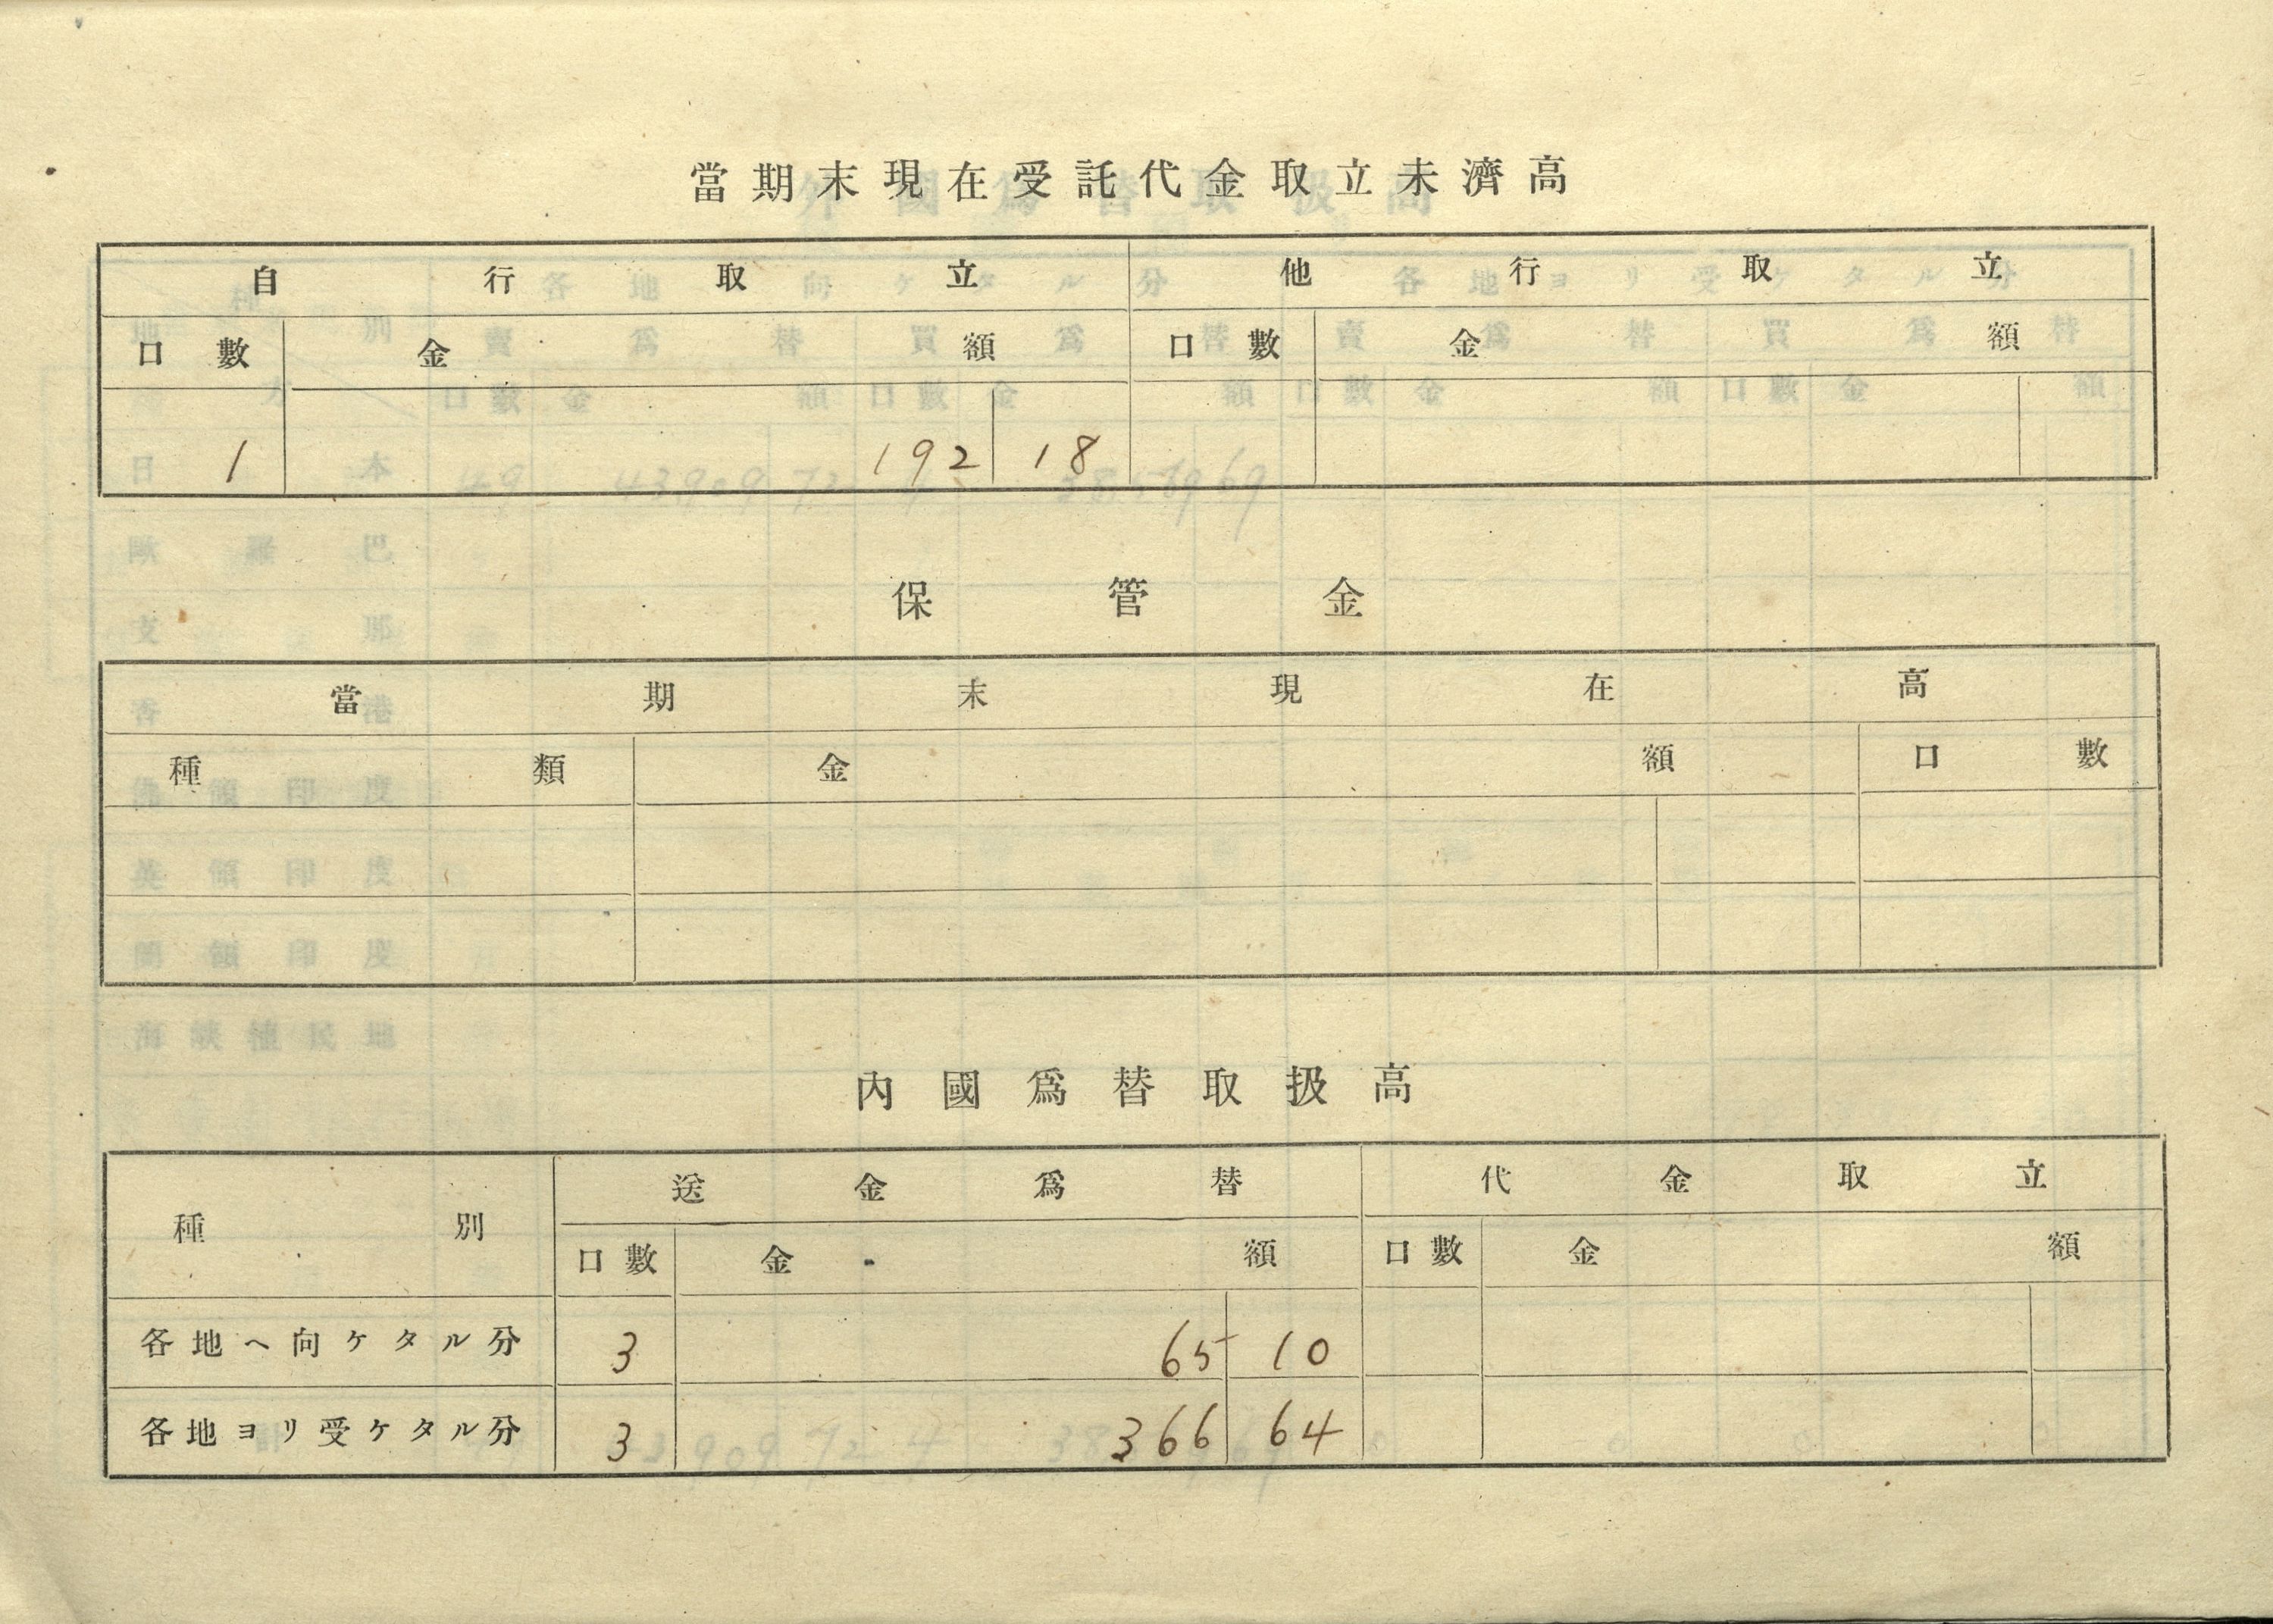 當期末現在受託代金取立未濟高
自行取立 他行取立
口數 金額 口數 金額
1 192 18
保管金
當期末現在高
種類 金額 口數
內國爲替取扱高
種別 送金爲替 代金取立
口數 金額 口數 金額
各地ヘ向ケタル分 3 65 10
各地ヨリ受ケタル分 3 366 64